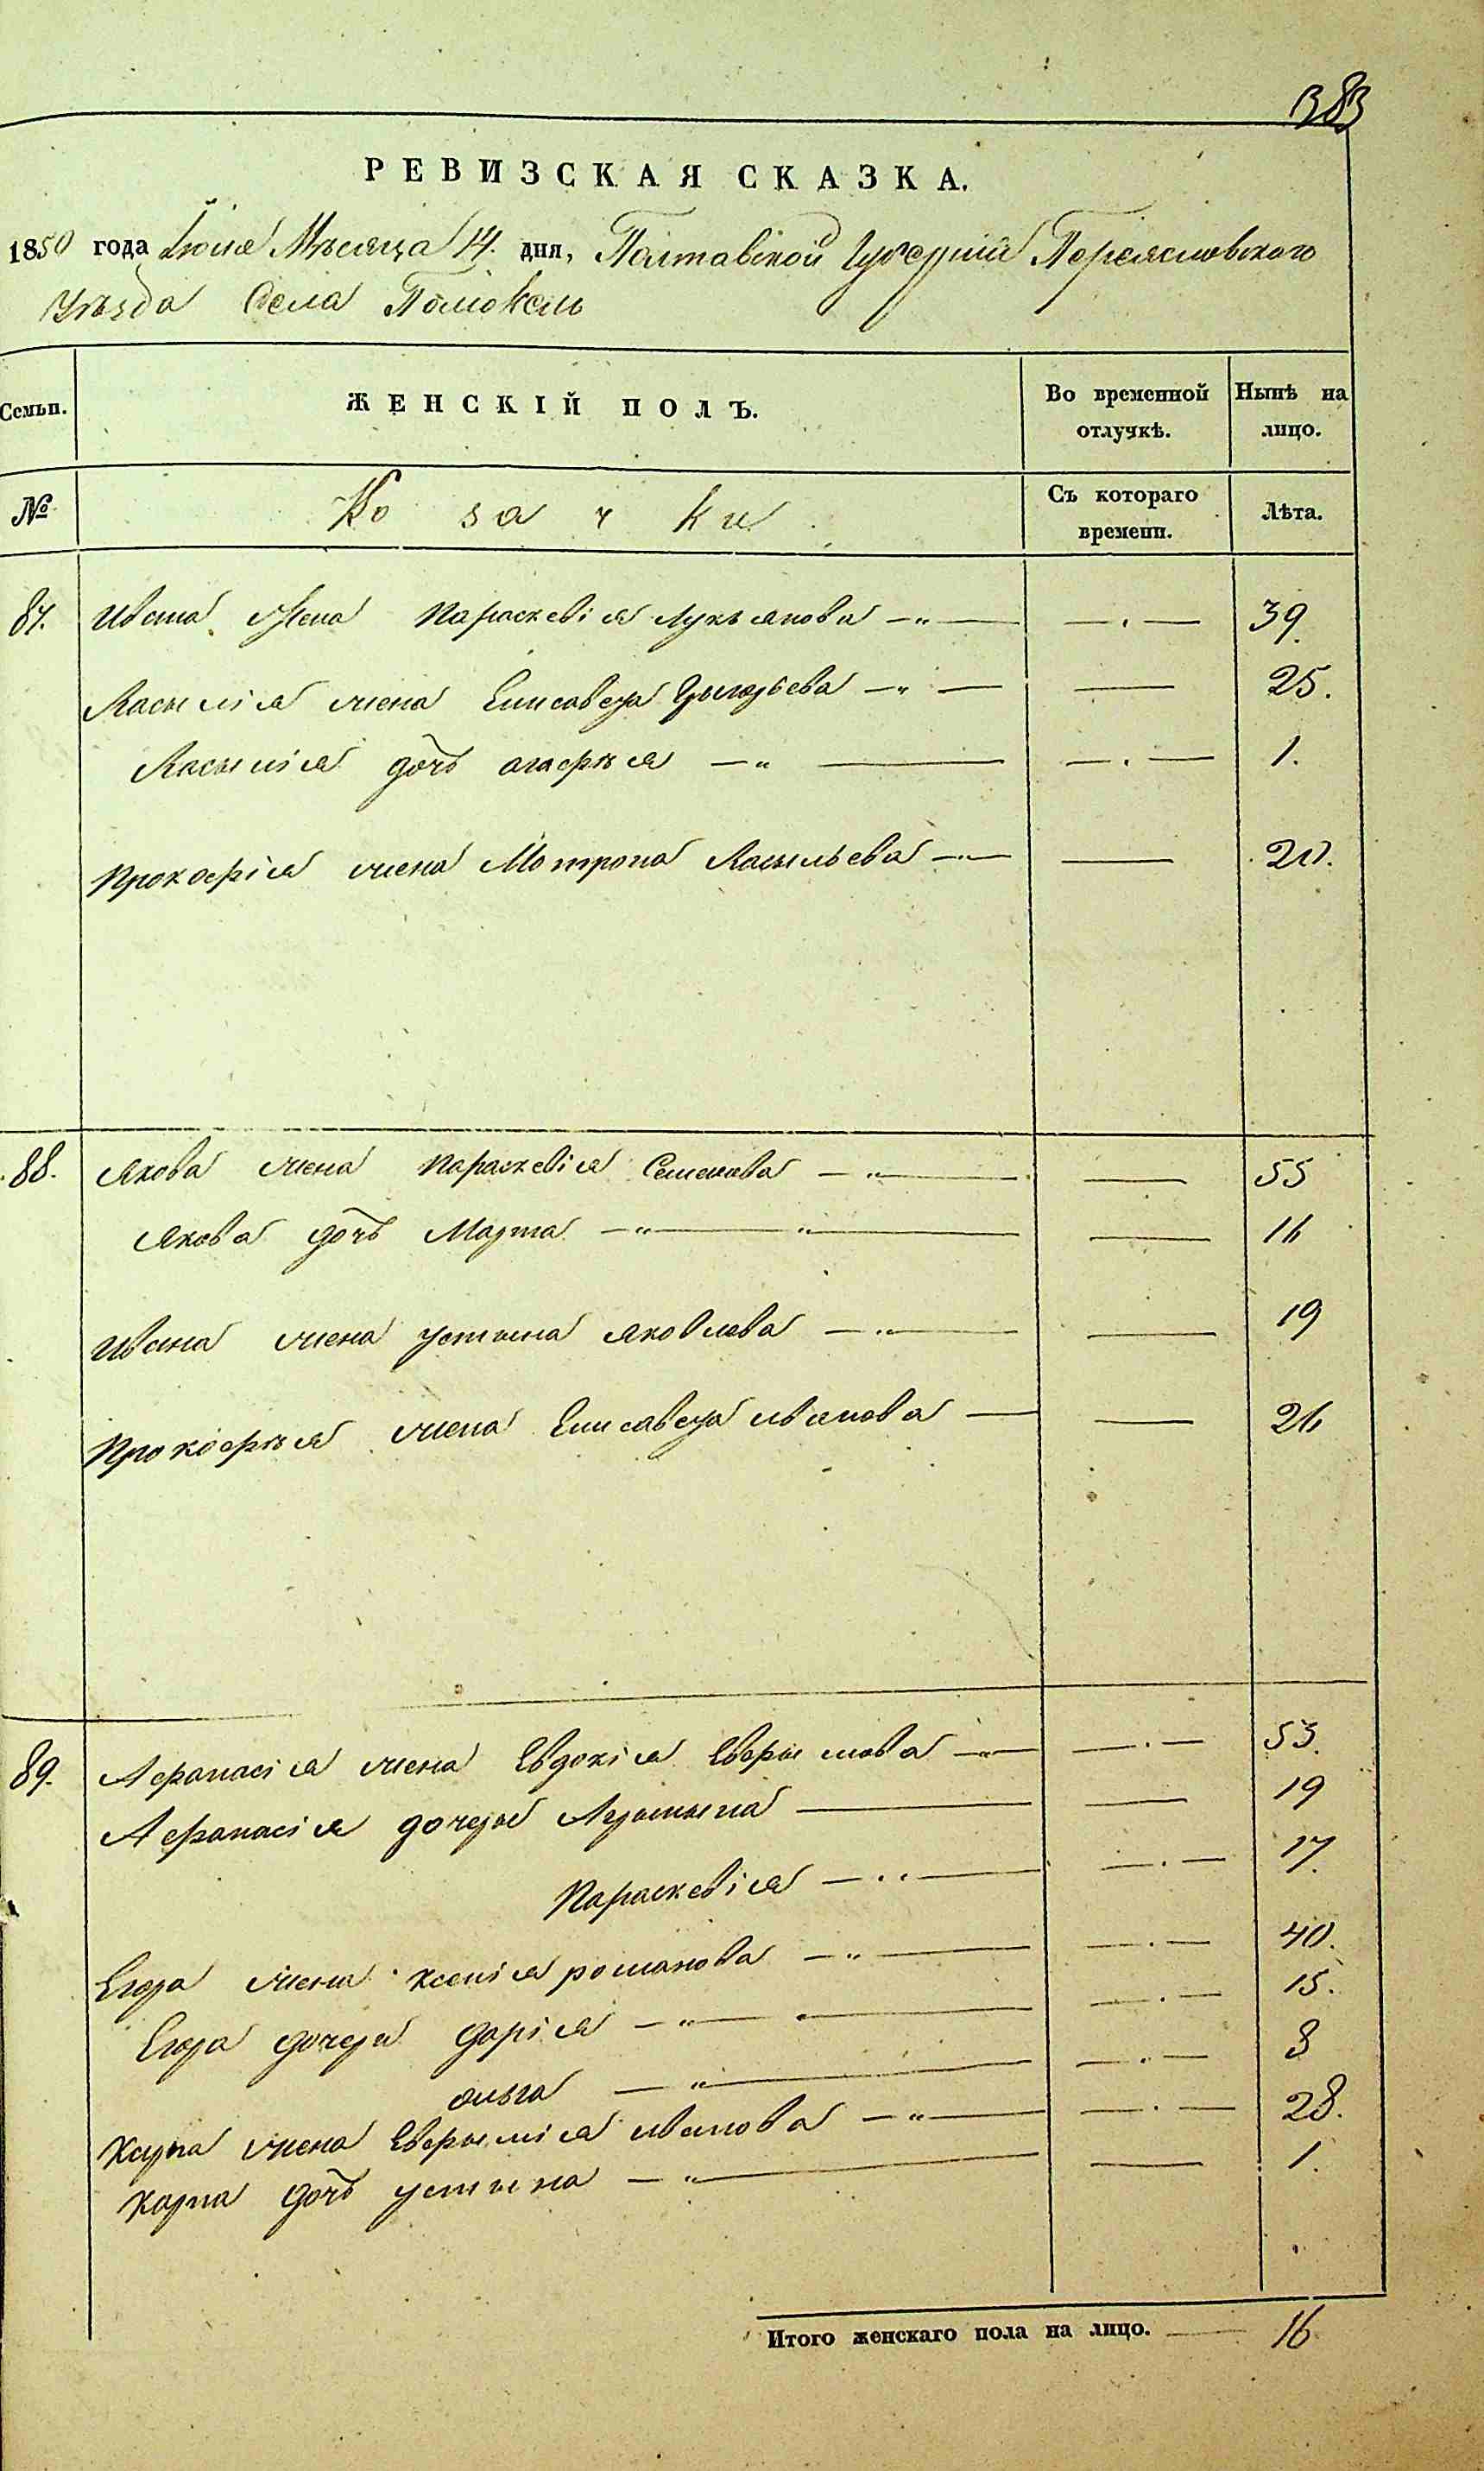 383
РЕВИЗСКАЯ СКАЗКА.
1850 года Іюня Мѣсяца 14. дня, Полтавской Губерніи Переяславского
Уѣзда Села Помокель
Семьи. ЖЕНСКІЙ ПОЛЪ. Во временной отлучкѣ. Нынѣ на лицо.
№ Козачки Съ котораго времени. Лѣта.
87. Ивана Жена Параскевія Лукьянова 39.
Васылія жена Елисавета Грыгорьева 25.
Васылія дочь Агафія 1.
Прокофія жена Мотрона Васыльева 20.
88. Якова жена Параскевія Семенова 55
Якова дочь Марта 16
Ивана жена Устына Яковлева 19
Прокофія жена Елисавета Иванова 26
89. Афанасія жена Евдокія Ефрымова 53.
Афанасія дочеры 19
Параскевія 17.
Егора жена Ксенія Романова 40.
Егора дочеры Дарія 15.
Ольга 8
Карпа жена Ефрымія Иванова 28.
Карпа дочь Устына 1.
Итого женскаго пола на лицо. 16